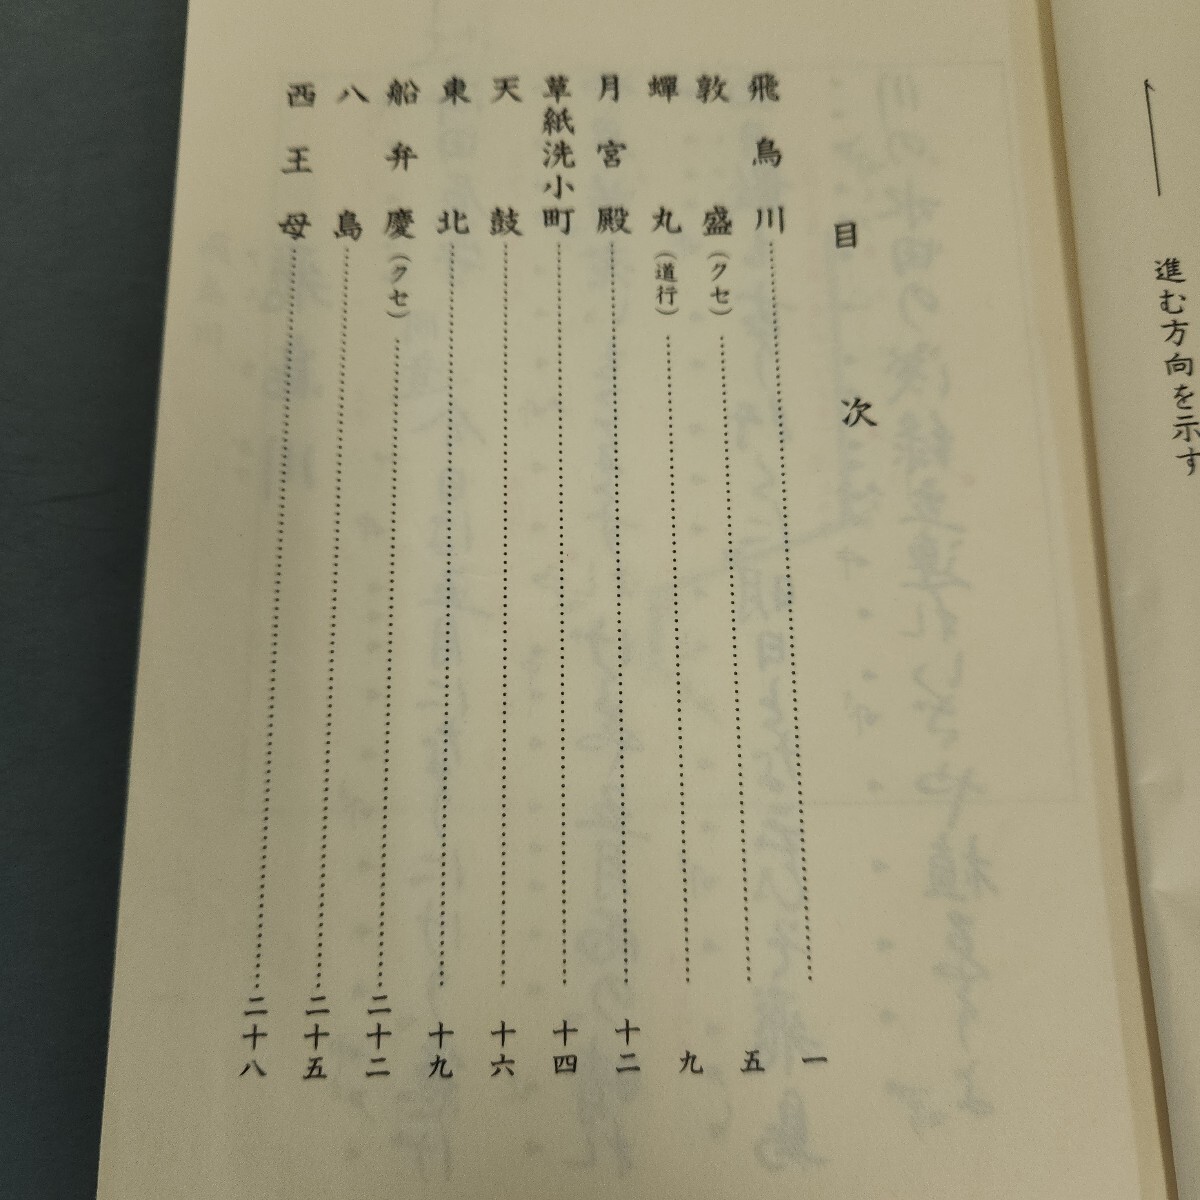 進む方向を示す
目次
飛鳥川 一
敦盛(クセ) 五
蟬丸(道行) 九
月宮殿 十二
草紙洗小町 十四
天鼓 十六
東北 十九
船弁慶(クセ) 二十二
八島 二十五
西王母 二十八